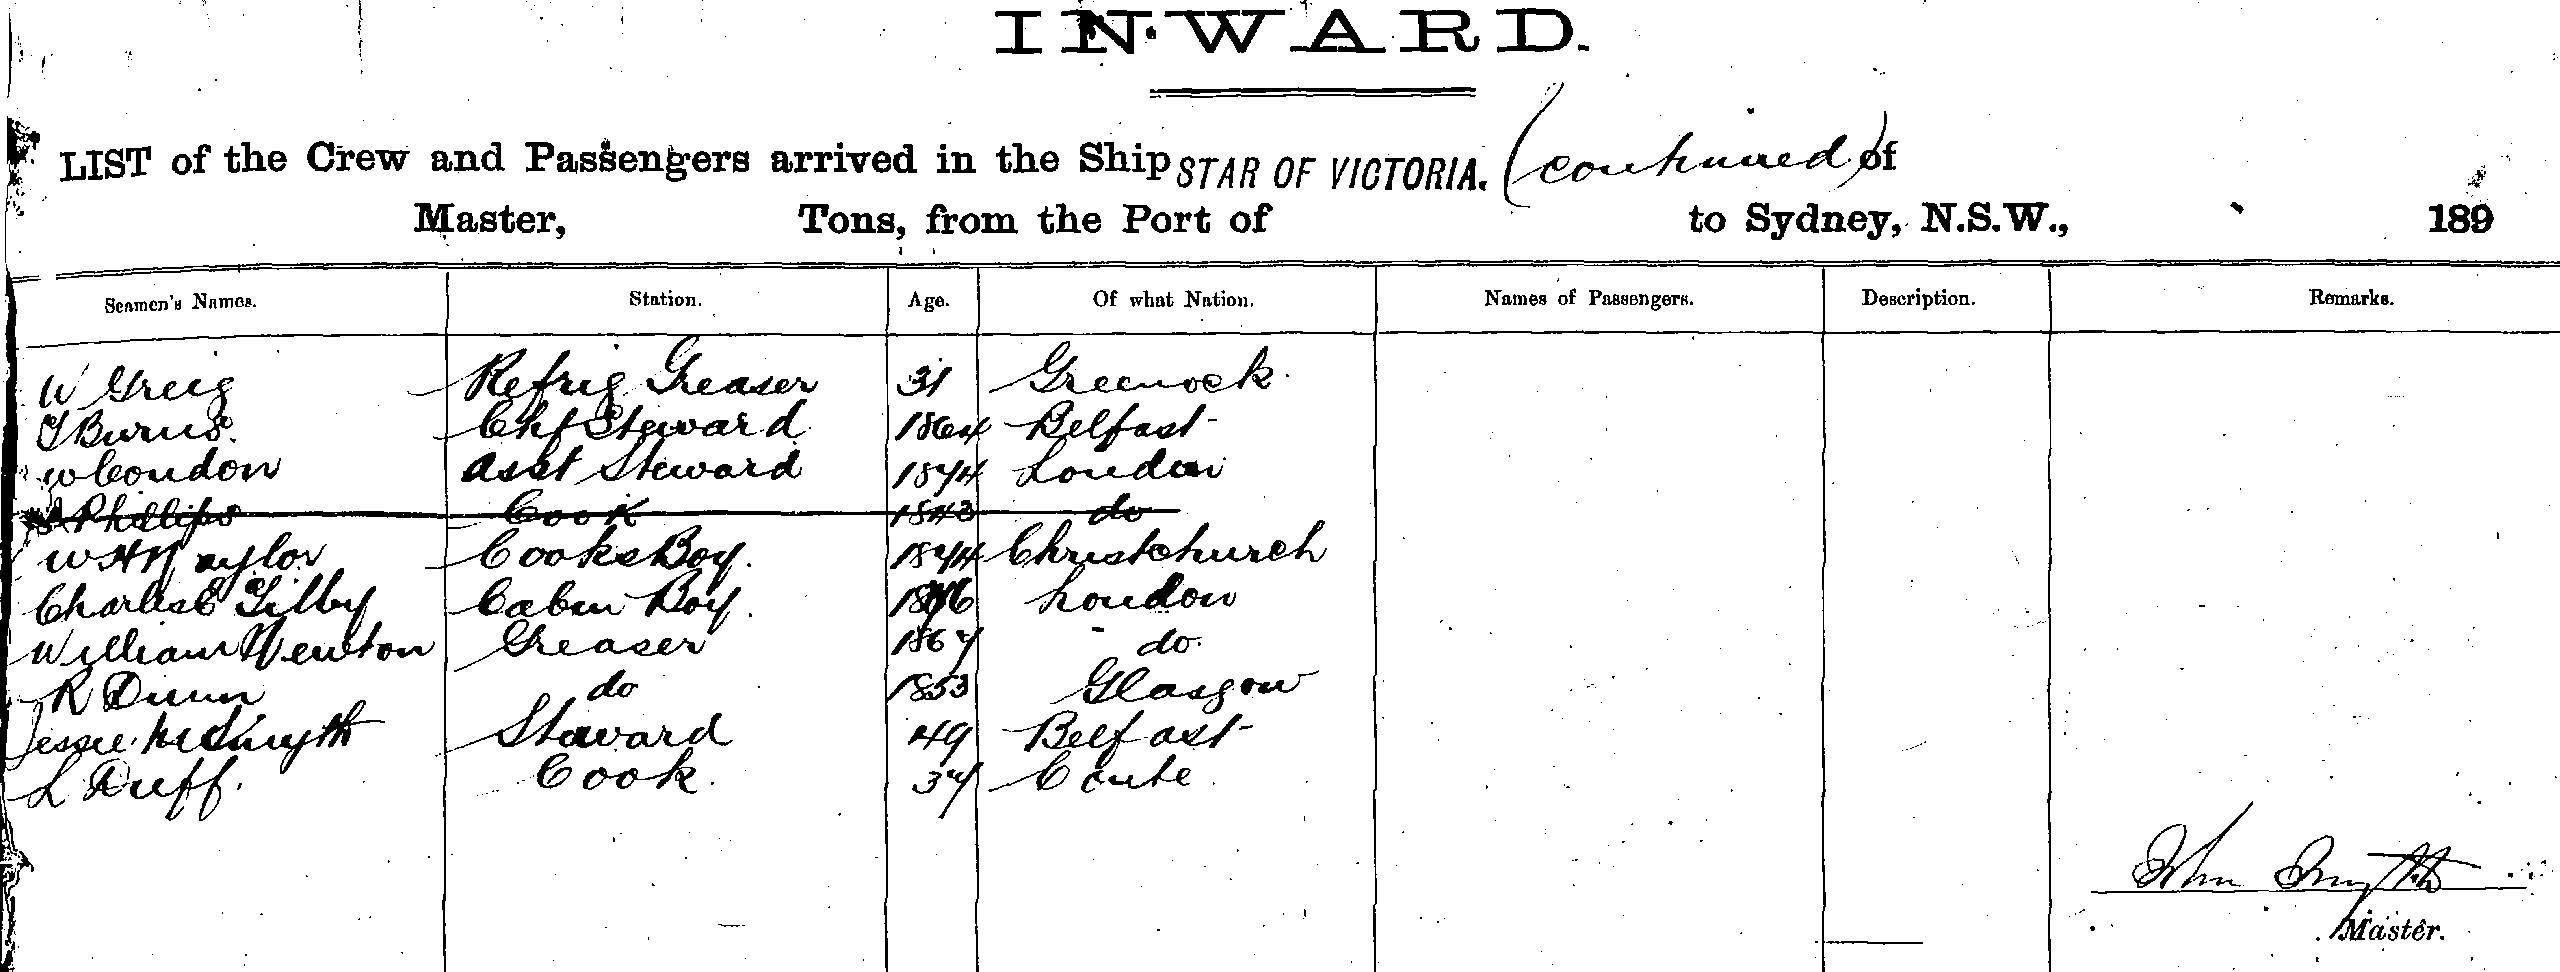 INWARD.
LIST of the Crew and Passengers arrived in the Ship STAR OF VICTORIA. (continued) of
Master, Tons, from the Port of to Sydney, N.S.W., 189
Seamen's Names. Station. Age. Of what Nation. Names of Passengers. Description. Remarks.
W Greig Refrig Greaser 31 Greenock
Burns. Chf Steward 1864 Belfast
W Condon Asst Steward 1874 London
Phillips Cook 1843 do
W H Naylor Cooks Boy. 1874 Christchurch
Charles E Gilby Cabin Boy. 1876 London
William Newton Greaser 1867 do
R Dunn do 1853 Glasgow
Jessie Smyth Steward 49 Belfast
L Duff. Cook. 37
John Smyth
Master.